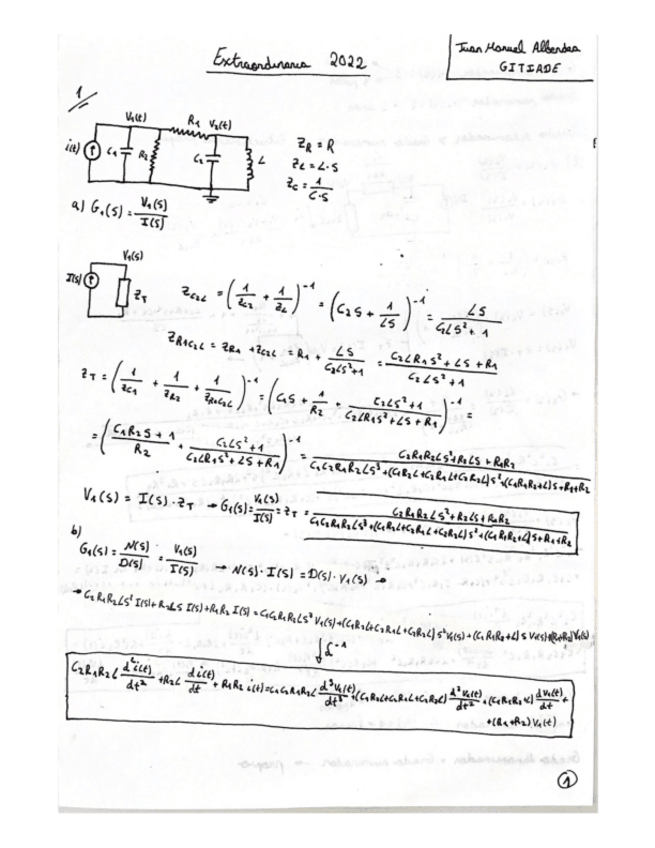 Extraordinaria 2022
Juan Manuel Albendea
GITIADE
1
V₁(t) R₁ V₂(t)
i(t) C₁ R₂ C₂ L
Z_R = R
Z_L = L·S
Z_C = 1/(C·S)
a) G₁(S) = V₁(S)/I(S)
V₁(S)
I(S) Z_T
Z_C2L = (1/Z_C2 + 1/Z_L)⁻¹ = (C₂S + 1/(LS))⁻¹ = LS/(C₂LS²+1)
Z_R1C2L = Z_R1 + Z_C2L = R₁ + LS/(C₂LS²+1) = (C₂LR₁S² + LS + R₁)/(C₂LS²+1)
Z_T = (1/Z_C1 + 1/Z_R2 + 1/Z_R1C2L)⁻¹ = (C₁S + 1/R₂ + (C₂LS²+1)/(C₂LR₁S²+LS+R₁))⁻¹ =
= ((C₁R₂S+1)/R₂ + (C₂LS²+1)/(C₂LR₁S²+LS+R₁))⁻¹ = (C₂R₁R₂LS²+R₂LS+R₁R₂)/(C₁C₂R₁R₂LS³+(C₁R₂L+C₂R₁L+C₂R₂L)S²+(C₁R₁R₂+L)S+R₁+R₂)
V₁(S) = I(S)·Z_T → G₁(S) = V₁(S)/I(S) = Z_T = (C₂R₁R₂LS²+R₂LS+R₁R₂)/(C₁C₂R₁R₂LS³+(C₁R₂L+C₂R₁L+C₂R₂L)S²+(C₁R₁R₂+L)S+R₁+R₂)
b)
G₁(S) = N(S)/D(S) = V₁(S)/I(S) → N(S)·I(S) = D(S)·V₁(S) →
→ C₂R₁R₂LS² I(S) + R₂LS I(S) + R₁R₂ I(S) = C₁C₂R₁R₂LS³ V₁(S) + (C₁R₂L+C₂R₁L+C₂R₂L)S² V₁(S) + (C₁R₁R₂+L)S V₁(S) + (R₁+R₂)V₁(S)
⇓ ℒ⁻¹
C₂R₁R₂L d²i(t)/dt² + R₂L di(t)/dt + R₁R₂ i(t) = C₁C₂R₁R₂L d³V₁(t)/dt³ + (C₁R₂L+C₂R₁L+C₂R₂L) d²V₁(t)/dt² + (C₁R₁R₂+L) dV₁(t)/dt +
+ (R₁+R₂)V₁(t)
1